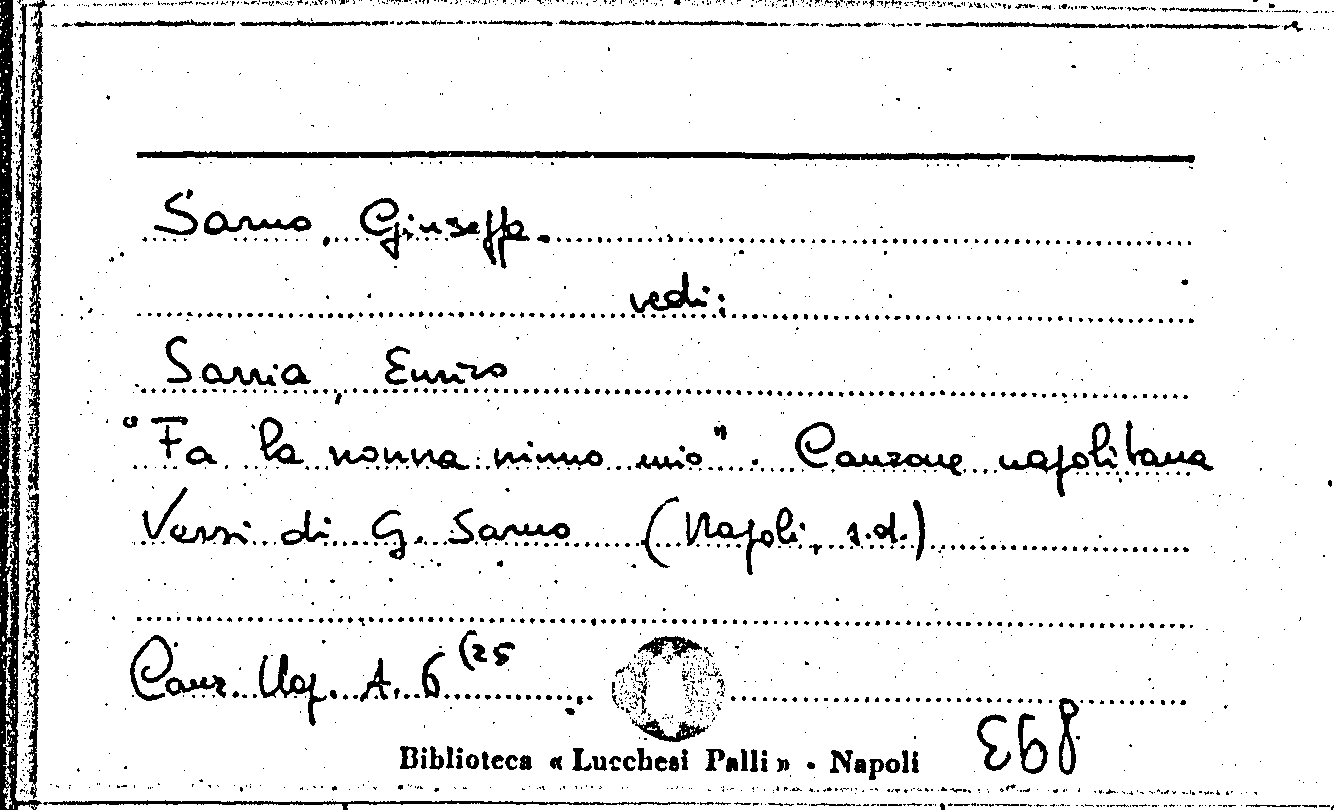 Sarno, Giuseppe.
vedi:
Sarria, Enrico
"Fa la nonna ninno mio". Canzone napolitana
Versi di G. Sarno (Napoli, s.d.)
Canz. Nap. A. 6 (25
Biblioteca « Lucchesi Palli » - Napoli